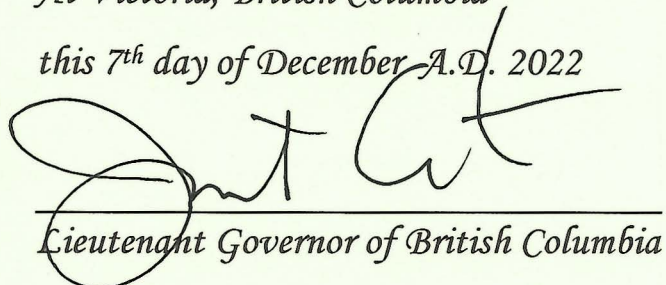 At Victoria, British Columbia
this 7th day of December A.D. 2022
Lieutenant Governor of British Columbia